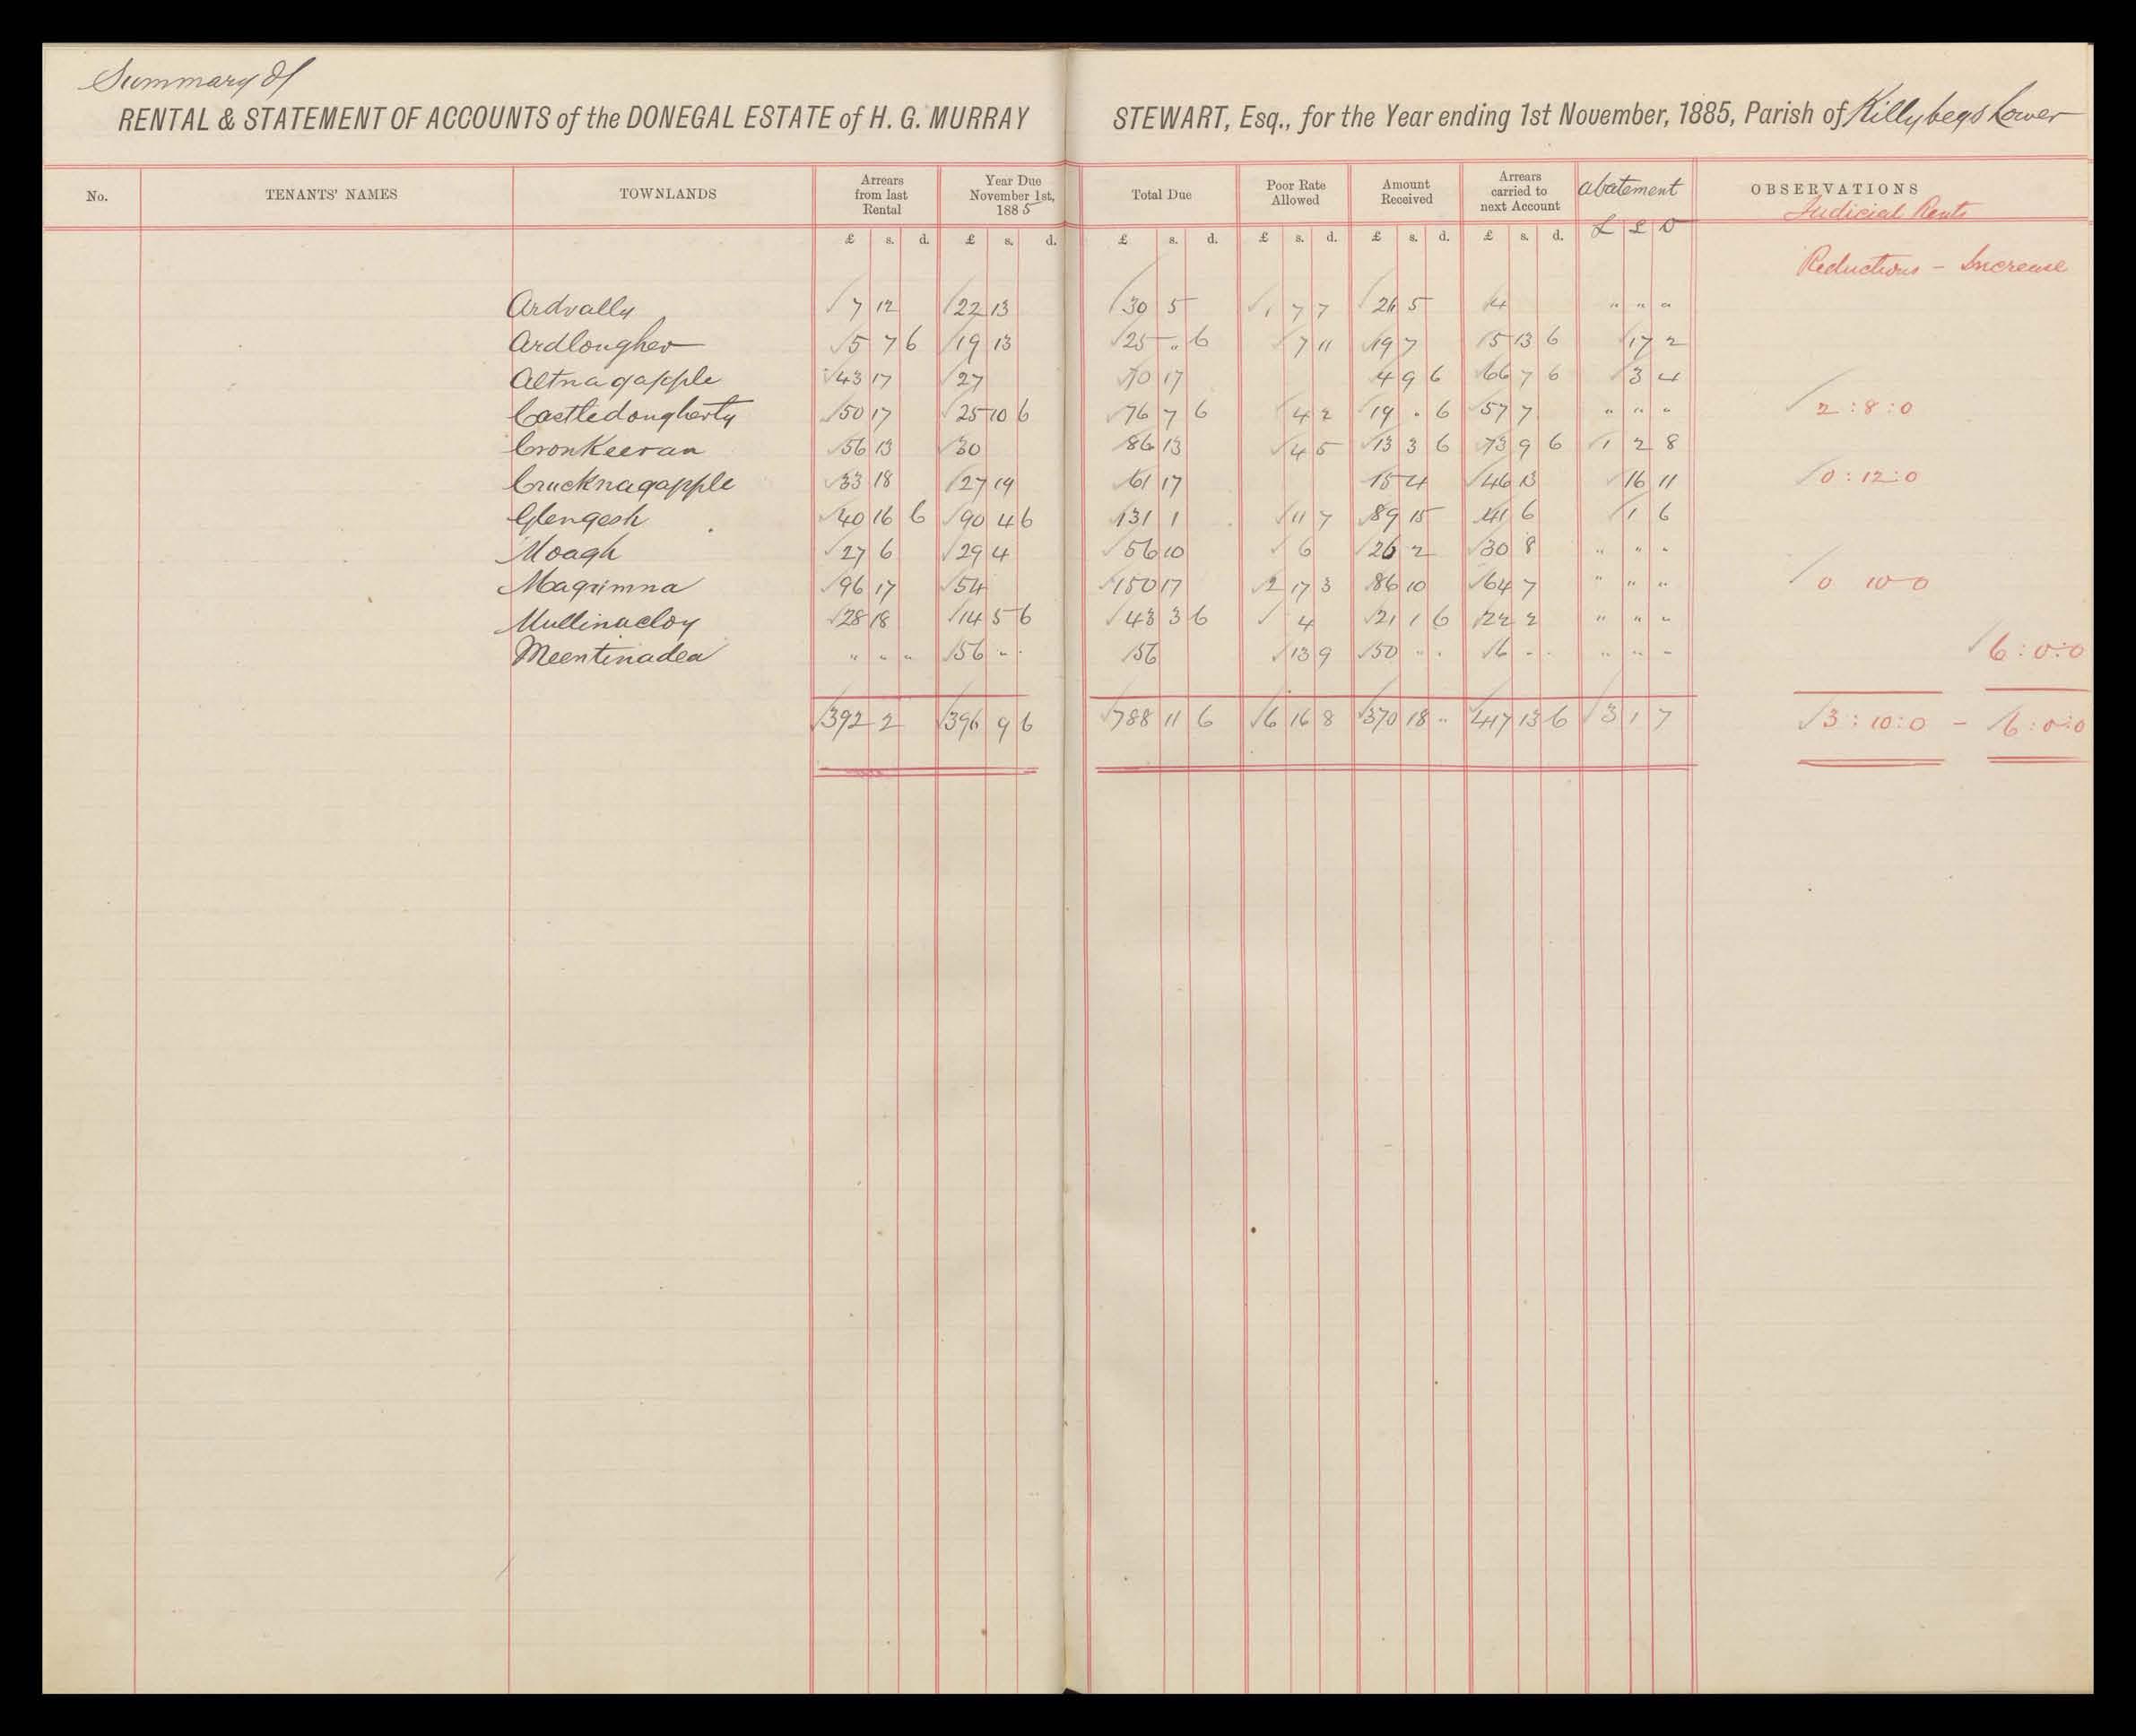 Summary of
RENTAL & STATEMENT OF ACCOUNTS of the DONEGAL ESTATE of H. G. MURRAY STEWART, Esq., for the Year ending 1st November, 1885, Parish of Killybegs Lower
No. TENANTS' NAMES TOWNLANDS Arrears from last Rental Year Due November 1st, 1885 Total Due Poor Rate Allowed Amount Received Arrears carried to next Account Abatement OBSERVATIONS
Judicial Rents
£ s. d. £ s. d. £ s. d. £ s. d. £ s. d. £ s. d. £ S D
Reductions - Increase
Ardvally 7 12 22 13 30 5 1 7 7 26 5 4 " " "
Ardlougher 5 7 6 19 13 25 " 6 7 11 19 7 5 13 6 17 2
Altnagapple 43 17 27 70 17 4 9 6 66 7 6 3 4
Castledougherty 50 17 25 10 6 76 7 6 4 2 19 " 6 57 7 " " " 2:8:0
Cronkeeran 56 13 30 86 13 4 5 13 3 6 73 9 6 1 2 8
Crucknagapple 33 18 27 19 61 17 15 4 46 13 16 11 0:12:0
Glengesh 40 16 6 90 4 6 131 1 11 7 89 15 41 6 1 6
Moagh 27 6 29 4 56 10 6 26 2 30 8 " " "
Magrimna 96 17 54 150 17 2 17 3 86 10 64 7 " " " 0 10 0
Mullinacloy 28 18 14 5 6 43 3 6 4 21 1 6 22 2 " " "
Meentinadea " " " 56 " " 56 13 9 50 " " 6 " " " " " 6:0:0
392 2 396 9 6 788 11 6 6 16 8 370 18 " 417 13 6 3 1 7 3:10:0 - 6:0:0